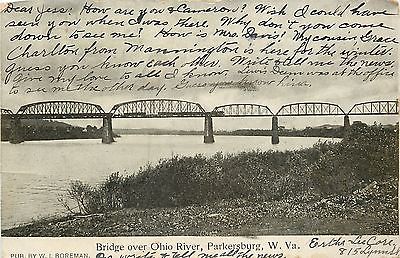 Dear Jess! How are you & Cameron? Wish I could have
seen you when I was there. Why don't you come
down to see me! How is Mrs. Davis! My cousin Grace
Charlton from Mannington is here for the winter.
Guess you know each other. Write tell me all the news.
Give my love to all I know. Lewis Denn was at the office
to see me the other day.
Bridge over Ohio River, Parkersburg, W. Va.
PUB. BY W. I. BOREMAN.
Do write & tell me all the news.
815 Lynn St